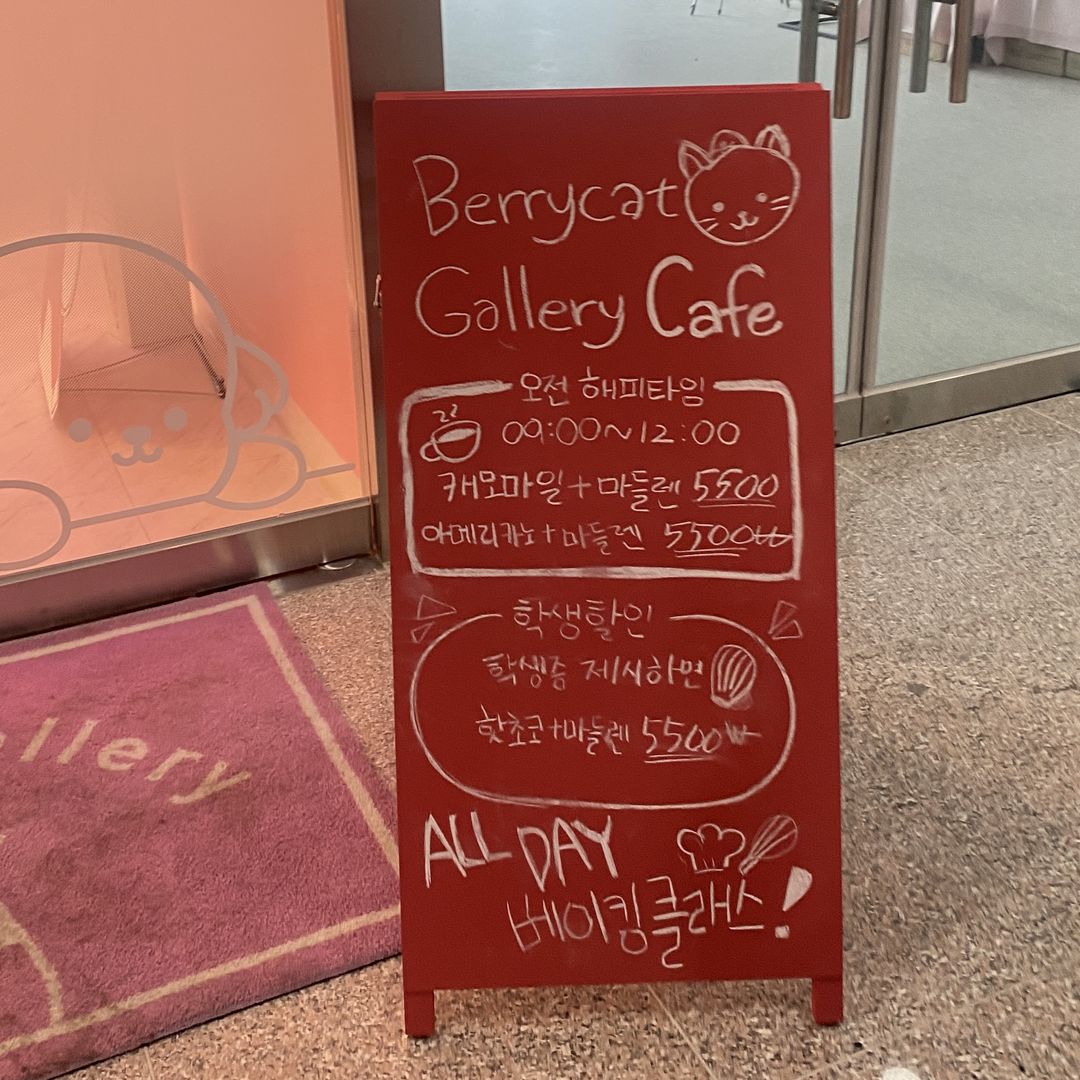 Berrycat
Gallery Cafe
오전 해피타임
09:00~12:00
캐모마일+마들렌 5500
아메리카노+마들렌 5500₩
학생할인
학생증 제시하면
핫초코+마들렌 5500₩
ALL DAY
베이킹클래스!
llery